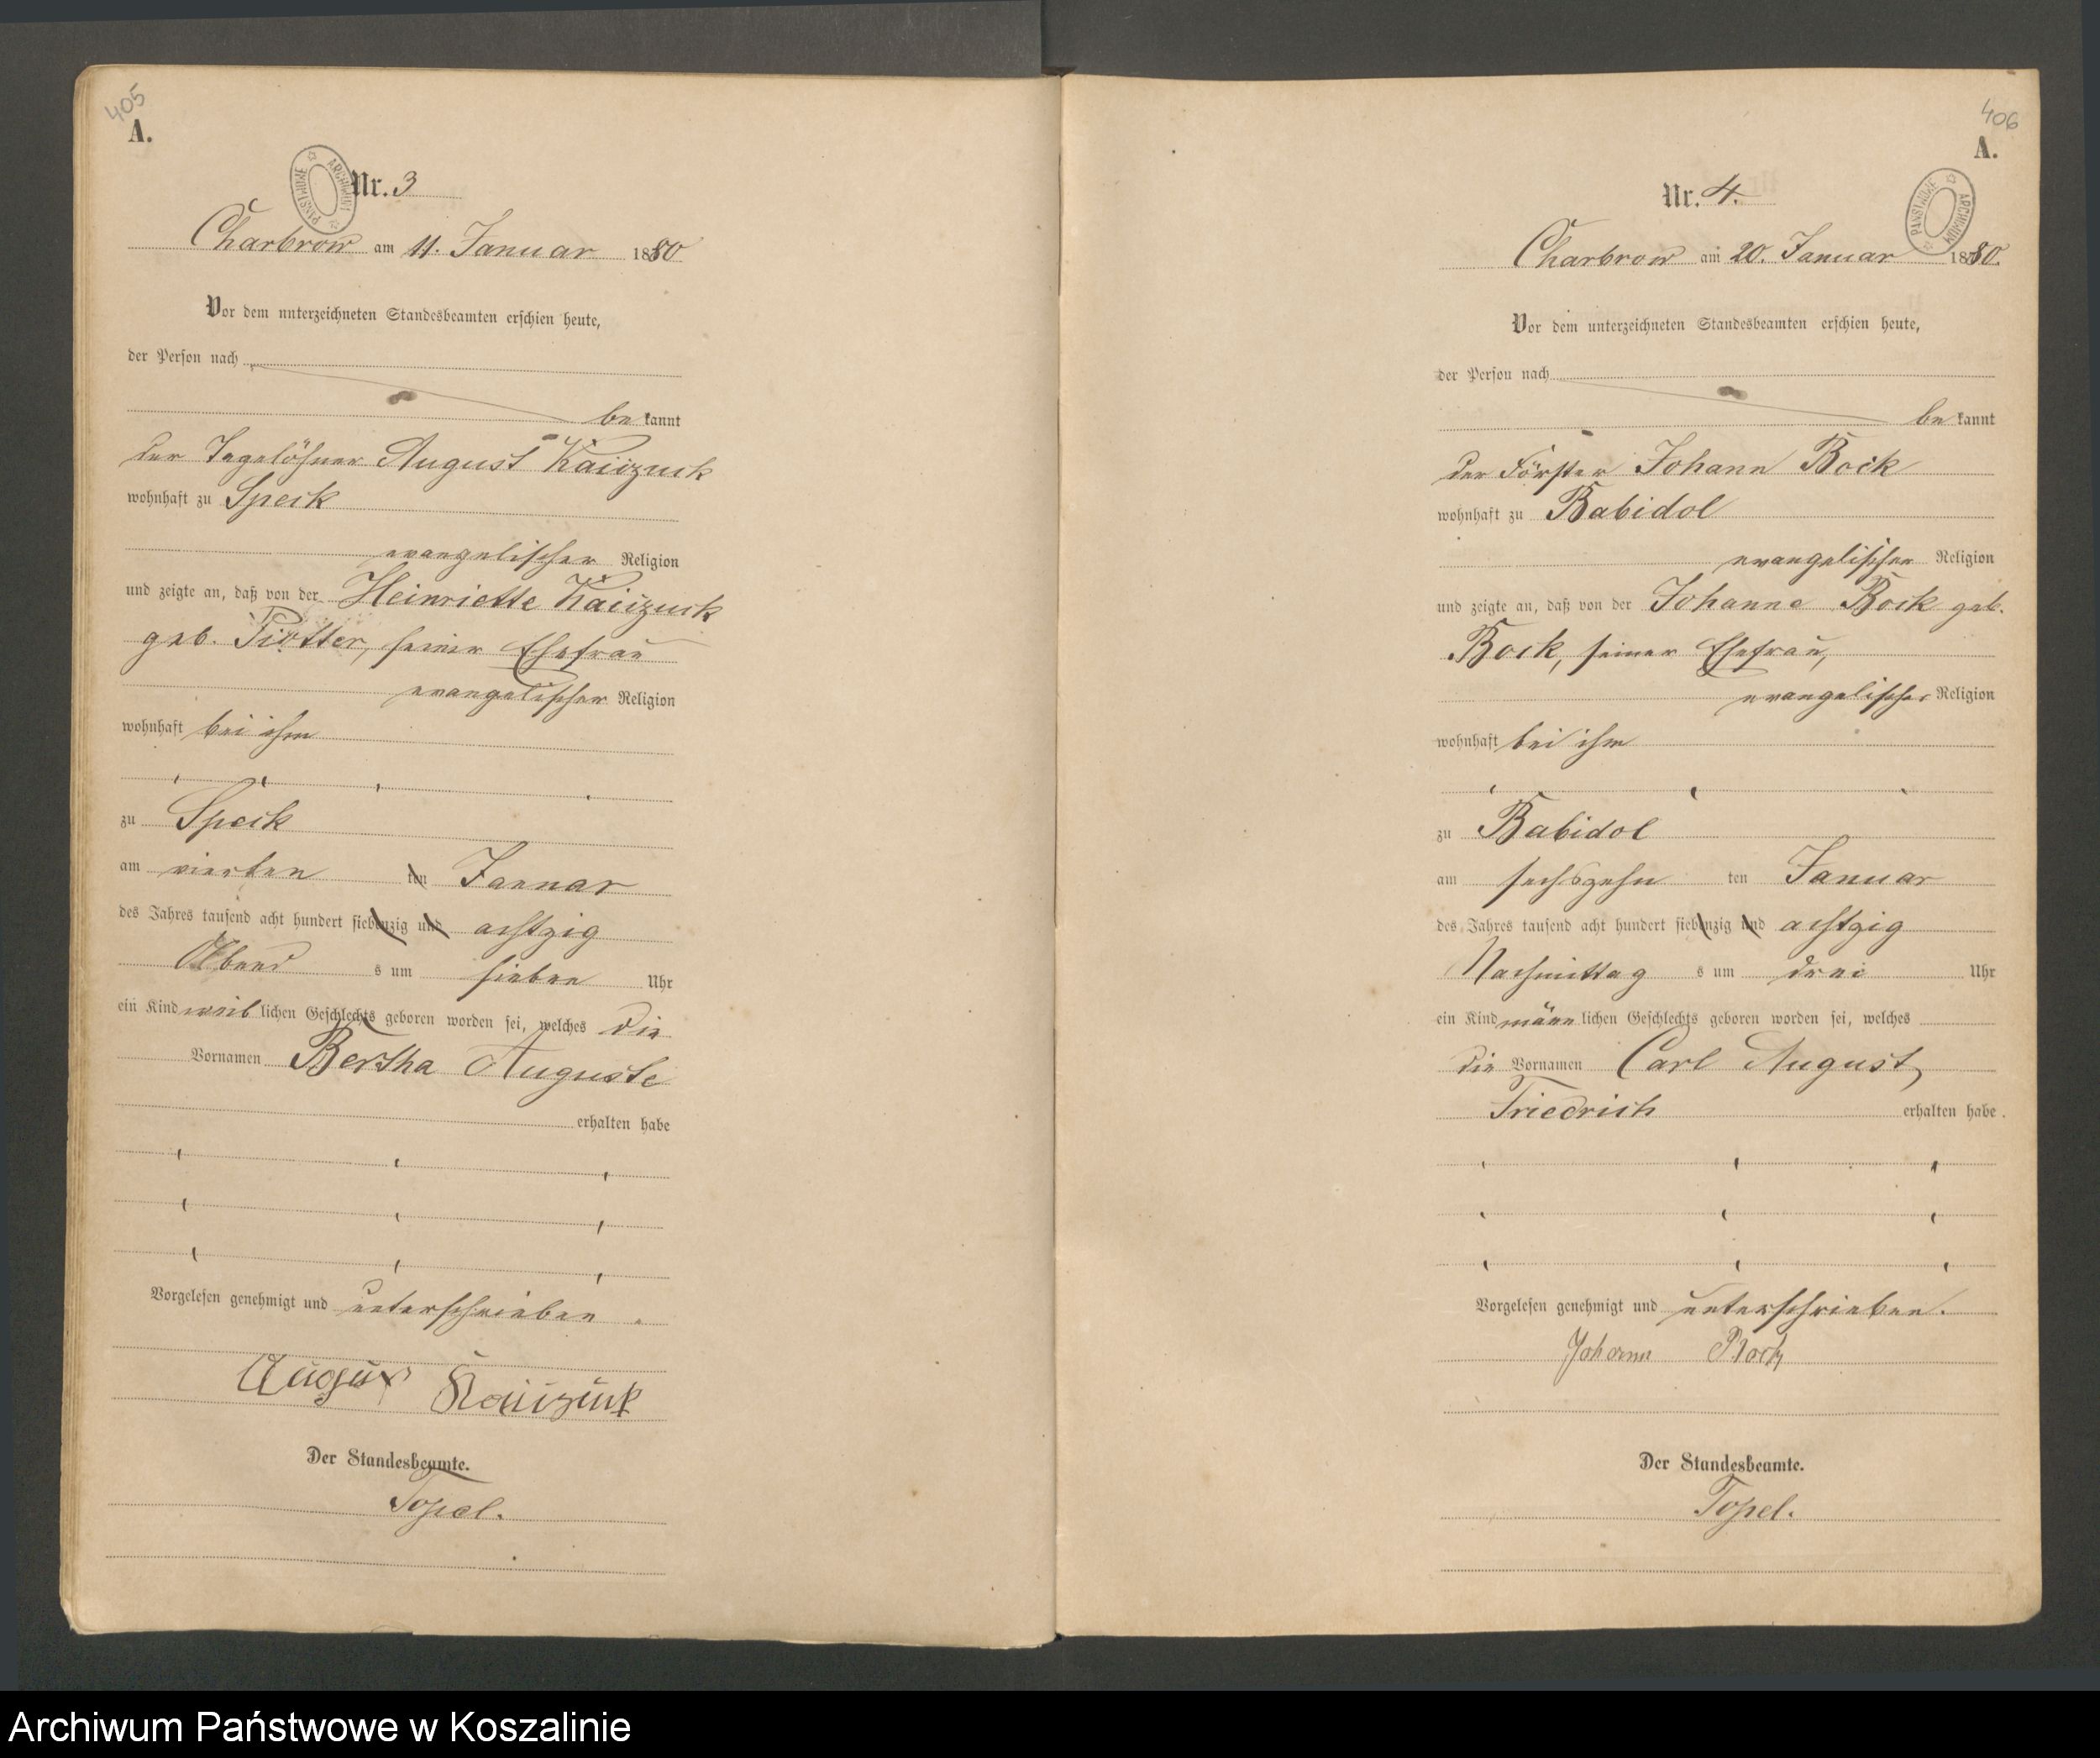 405
A.
Nr. 3
Charbrow am 11. Januar 1880
Vor dem unterzeichneten Standesbeamten erschien heute,
der Person nach
bekannt
der Tagelöhner August Kaiizuck
wohnhaft zu Speck
evangelischer Religion
und zeigte an, daß von der Heinriette Kaiizuck
geb. Piotter, seiner Ehefrau
evangelischer Religion
wohnhaft bei ihm
zu Speck
am vierten ten Januar
des Jahres tausend acht hundert siebenzig und achtzig
Abend s um sieben Uhr
ein Kind weiblichen Geschlechts geboren worden sei, welches die
Vornamen Bertha Auguste
erhalten habe
Vorgelesen genehmigt und unterschrieben.
August Kaiizuck
Der Standesbeamte.
Topel.
406
A.
Nr. 4.
Charbrow am 20. Januar 1880.
Vor dem unterzeichneten Standesbeamten erschien heute,
der Person nach
bekannt
der Förster Johann Bock
wohnhaft zu Babidol
evangelischer Religion
und zeigte an, daß von der Johanne Bock geb.
Bock, seiner Ehefrau,
evangelischer Religion
wohnhaft bei ihm
zu Babidol
am sechszehn ten Januar
des Jahres tausend acht hundert siebenzig und achtzig
Nachmittag s um drei Uhr
ein Kind männlichen Geschlechts geboren worden sei, welches
die Vornamen Carl August
Friedrich erhalten habe.
Vorgelesen genehmigt und unterschrieben.
Johann Bock
Der Standesbeamte.
Topel.
ARCHIWUM PAŃSTWOWE
ARCHIWUM PAŃSTWOWE
Archiwum Państwowe w Koszalinie